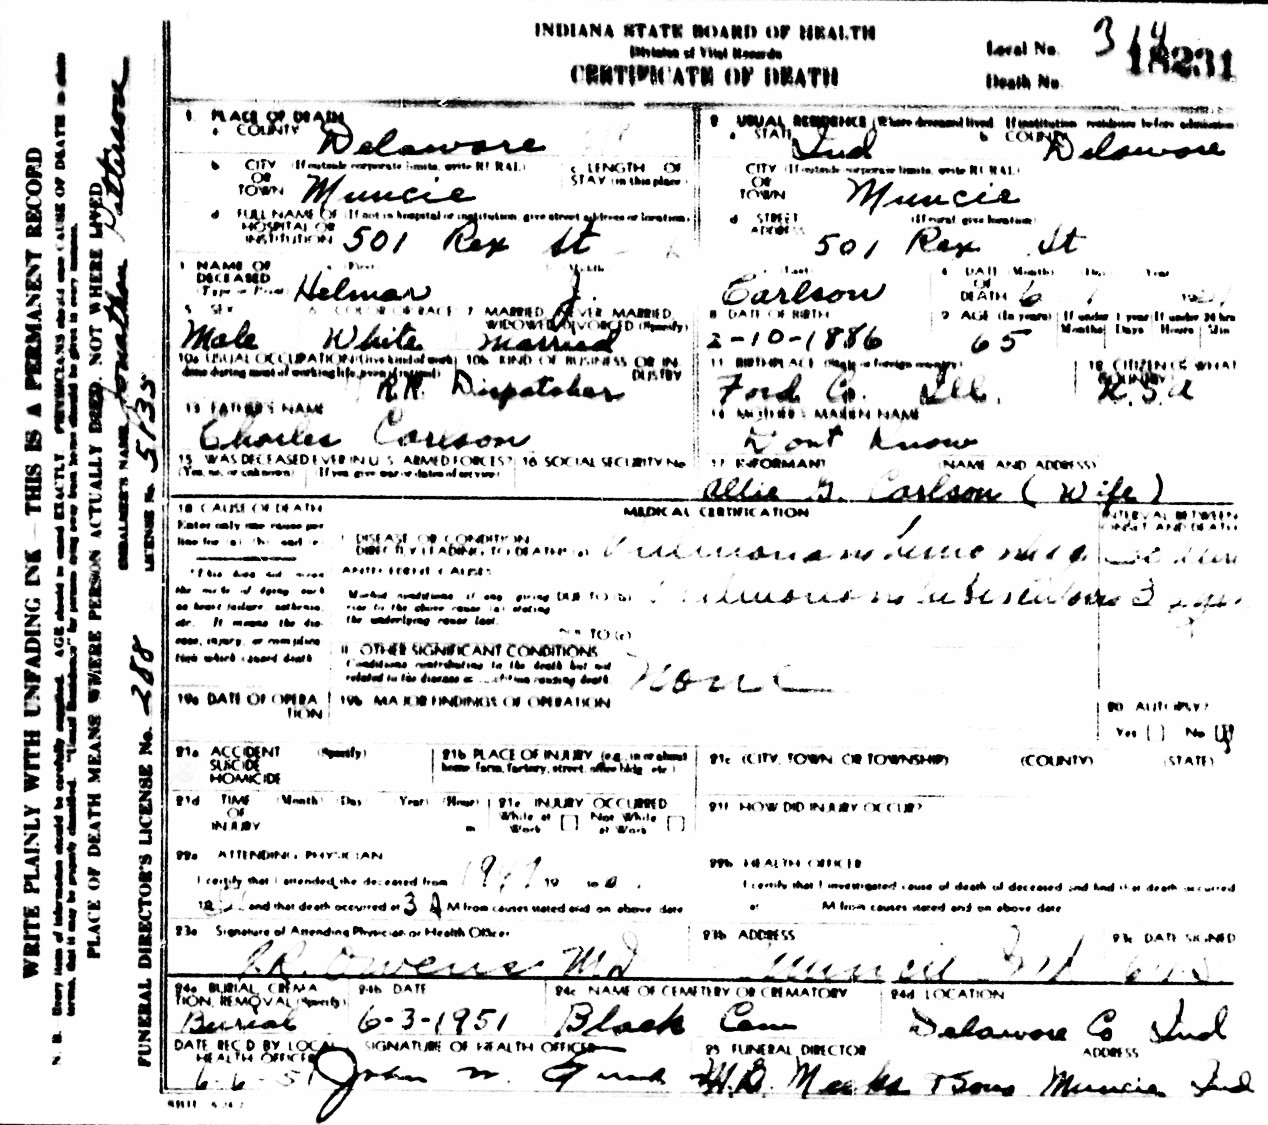 INDIANA STATE BOARD OF HEALTH
Division of Vital Records
CERTIFICATE OF DEATH
Local No. 314
Death No. 18231
WRITE PLAINLY WITH UNFADING INK—THIS IS A PERMANENT RECORD
N. B. Every item of information should be carefully supplied. AGE should be stated EXACTLY. PHYSICIANS should state CAUSE OF DEATH in plain
terms, that it may be properly classified. "Usual Residence" for persons dying away from home should be given in every instance.
PLACE OF DEATH MEANS WHERE PERSON ACTUALLY DIED, NOT WHERE LIVED
EMBALMER'S NAME Jonathan Patterson
LICENSE No. 5135
FUNERAL DIRECTOR'S LICENSE No. 288
1. PLACE OF DEATH
a. COUNTY Delaware
2. USUAL RESIDENCE (Where deceased lived. If institution: residence before admission)
a. STATE Ind b. COUNTY Delaware
b. CITY OR TOWN (If outside corporate limits, write RURAL) Muncie
c. LENGTH OF STAY (in this place)
CITY OR TOWN (If outside corporate limits, write RURAL) Muncie
d. FULL NAME OF HOSPITAL OR INSTITUTION (If not in hospital or institution, give street address or location) 501 Rex St
d. STREET ADDRESS (If rural, give location) 501 Rex St
3. NAME OF DECEASED (Type or Print) (First) Helmar (Middle) J. (Last) Carlson
4. DATE OF DEATH (Month) (Day) (Year) 6 1 1951
5. SEX Male
6. COLOR OR RACE White
7. MARRIED, NEVER MARRIED, WIDOWED, DIVORCED (Specify) Married
8. DATE OF BIRTH 2-10-1886
9. AGE (In years) 65
If under 1 year Months Days
If under 24 hrs Hours Min
10a. USUAL OCCUPATION (Give kind of work done during most of working life, even if retired) R.R. Dispatcher
10b. KIND OF BUSINESS OR INDUSTRY
11. BIRTHPLACE (State or foreign country) Ford Co. Ill.
12. CITIZEN OF WHAT COUNTRY? U.S.A
13. FATHER'S NAME Charles Carlson
14. MOTHER'S MAIDEN NAME Dont Know
15. WAS DECEASED EVER IN U. S. ARMED FORCES? (Yes, no, or unknown) (If yes, give war or dates of service)
16. SOCIAL SECURITY No.
17. INFORMANT (NAME AND ADDRESS) Allie G. Carlson (Wife)
18. CAUSE OF DEATH
Enter only one cause per line for (a), (b), and (c)
MEDICAL CERTIFICATION
INTERVAL BETWEEN ONSET AND DEATH
I. DISEASE OR CONDITION DIRECTLY LEADING TO DEATH (a) Pulmonary hemorrhage
ANTECEDENT CAUSES
Morbid conditions, if any, giving rise to the above cause (a) stating the underlying cause last.
DUE TO (b) Pulmonary tuberculosis
DUE TO (c)
*This does not mean the mode of dying, such as heart failure, asthenia, etc. It means the disease, injury, or complication which caused death.
II. OTHER SIGNIFICANT CONDITIONS
Conditions contributing to the death but not related to the disease or condition causing death. None
19a. DATE OF OPERATION
19b. MAJOR FINDINGS OF OPERATION
20. AUTOPSY?
Yes [ ] No [X]
21a. ACCIDENT SUICIDE HOMICIDE (Specify)
21b. PLACE OF INJURY (e.g., in or about home, farm, factory, street, office bldg., etc.)
21c. (CITY, TOWN, OR TOWNSHIP) (COUNTY) (STATE)
21d. TIME OF INJURY (Month) (Day) (Year) (Hour) m
21e. INJURY OCCURRED
While at Work [ ] Not While at Work [ ]
21f. HOW DID INJURY OCCUR?
22a. ATTENDING PHYSICIAN
I certify that I attended the deceased from 1949 19 to
19 51 and that death occurred at 3 A M from causes stated and on above date
22b. HEALTH OFFICER
I certify that I investigated cause of death of deceased and find that death occurred
at M from causes stated and on above date
23a. Signature of Attending Physician or Health Officer Owens MD
23b. ADDRESS Muncie Ind
23c. DATE SIGNED
24a. BURIAL, CREMATION, REMOVAL (Specify) Burial
24b. DATE 6-3-1951
24c. NAME OF CEMETERY OR CREMATORY Black Cem
24d. LOCATION Delaware Co Ind
DATE REC'D BY LOCAL HEALTH OFFICER 6-6-51
SIGNATURE OF HEALTH OFFICER
25. FUNERAL DIRECTOR ADDRESS
M.L. Meeks & Sons Muncie Ind